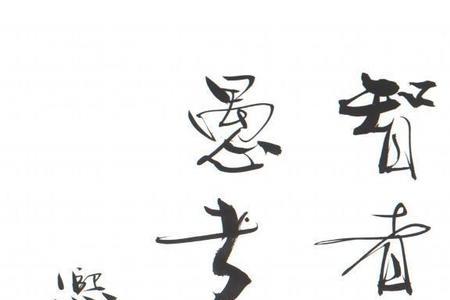 智者
愚者